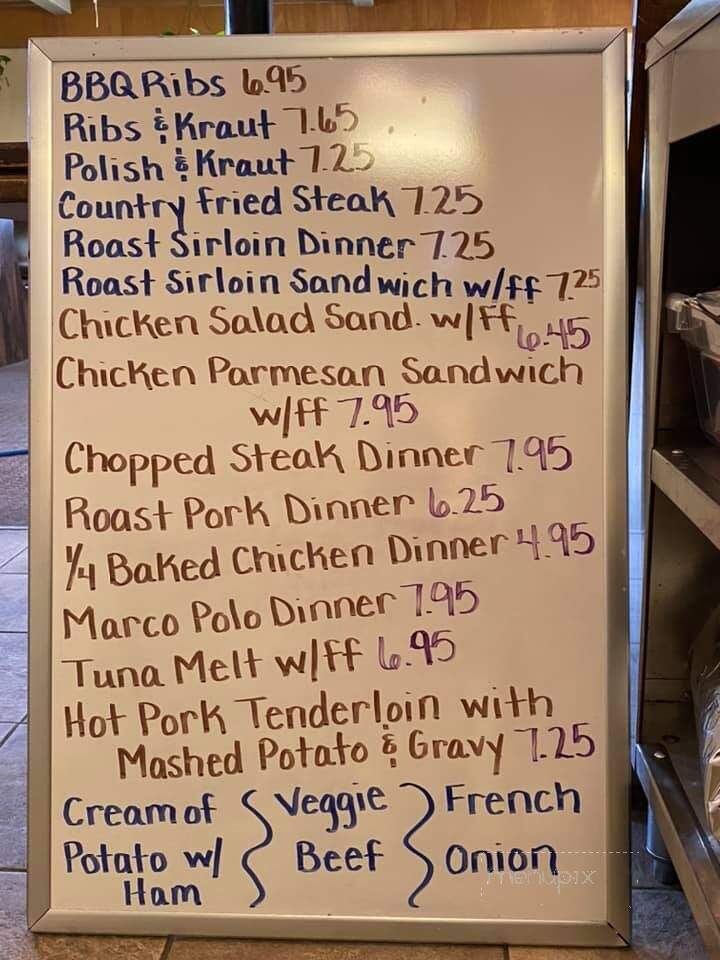 BBQ Ribs 6.95
Ribs & Kraut 7.65
Polish & Kraut 7.25
Country fried Steak 7.25
Roast Sirloin Dinner 7.25
Roast Sirloin Sandwich w/ff 7.25
Chicken Salad Sand. w/ff 6.45
Chicken Parmesan Sandwich
w/ff 7.95
Chopped Steak Dinner 7.95
Roast Pork Dinner 6.25
1/4 Baked Chicken Dinner 4.95
Marco Polo Dinner 7.95
Tuna Melt w/ff 6.95
Hot Pork Tenderloin with
Mashed Potato & Gravy 7.25
Cream of
Potato w/
Ham
Veggie
Beef
French
Onion
menupix